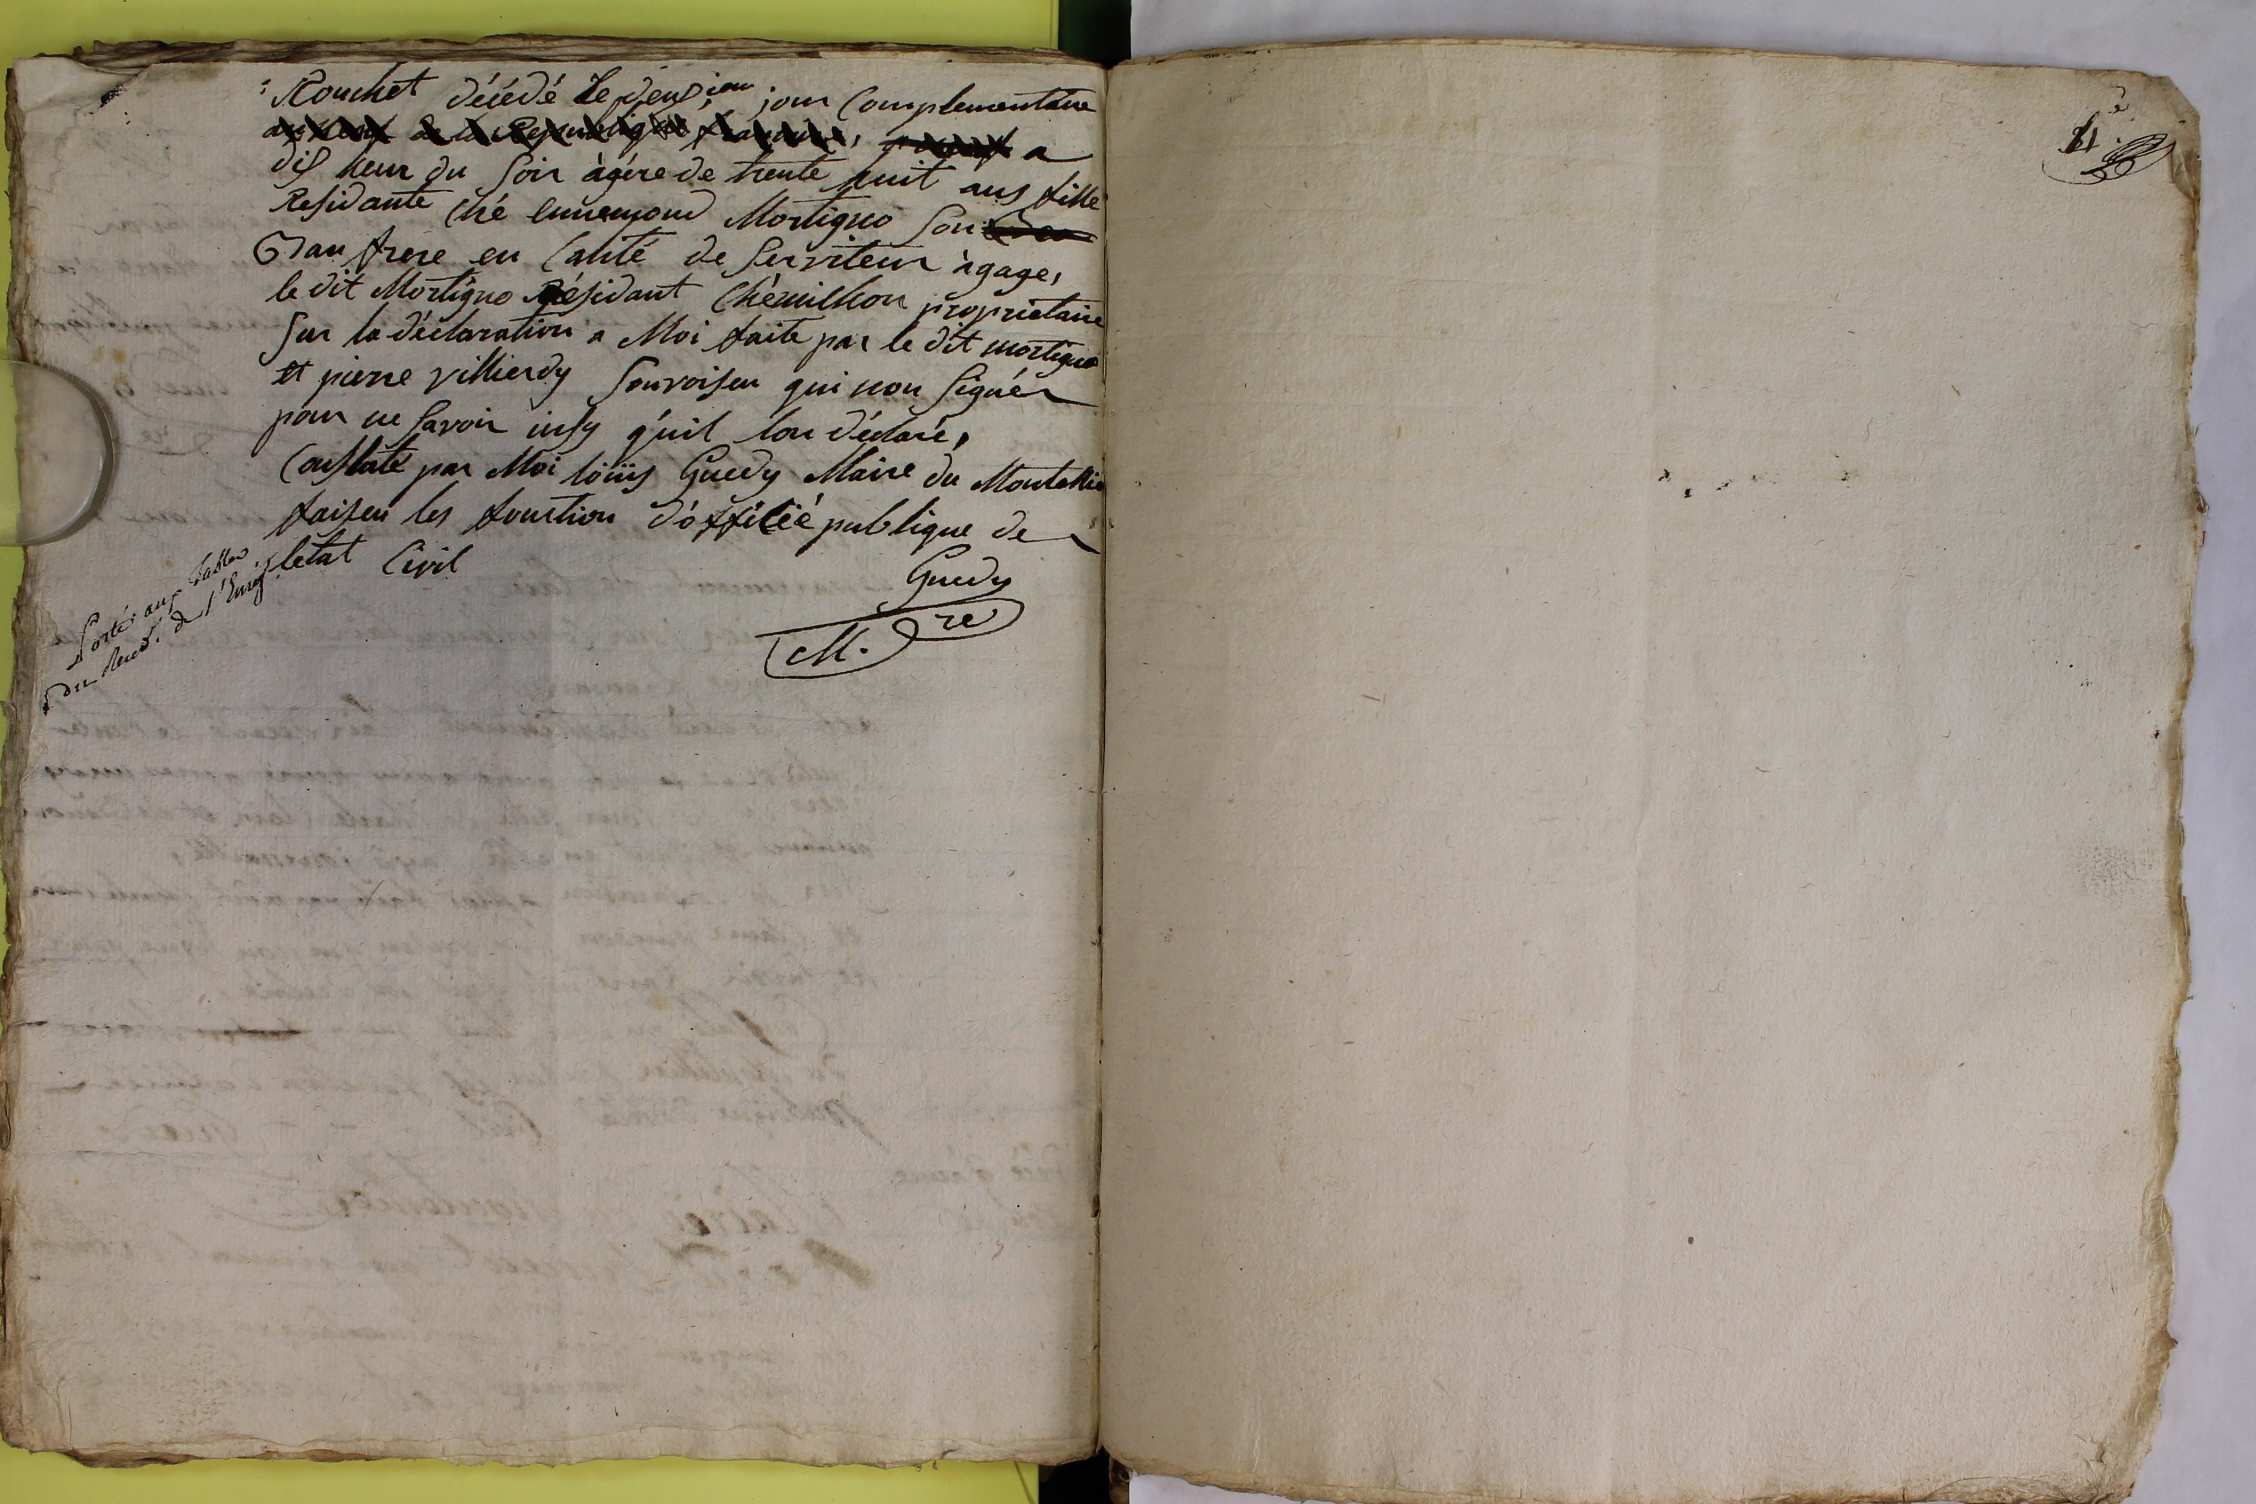 Rouchet décédé Le deuxiem jour Complementaire
a
dix heur du Soir àgére de trente huit ans fille
Residante ché ennemond Mortigno Son
Bau frere en Calité de Serviteur àgage,
le dit Mortigno Résidant Chémilhon propriétaire
Sur la déclaration a Moi faite par le dit mortigno
et pierre villierdy Sonvoisen qui non Signér
pour ne Savoir insy quil lon déclaré,
Constaté par Moi loüis Guedy Maire du Montellié
faisen les fonction dofficié publique de
letat Civil
Guedy
M. re
Portér aux tables
du Recev.r de l'Enreg.t